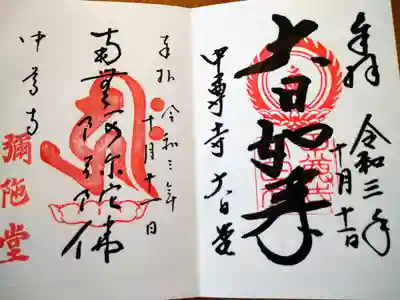 奉拝
令和三年
十月十一日
大日如来
中尊寺 大日堂
奉拝 令和三年
十月十一日
南無阿弥陀佛
中尊寺
彌陀堂